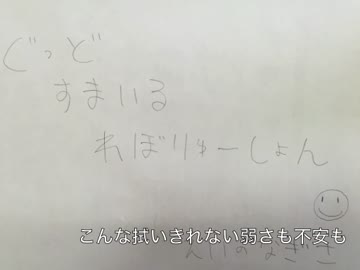 ぐっど
すまいる
れぼりゅーしょん
こんな拭いきれない弱さも不安も